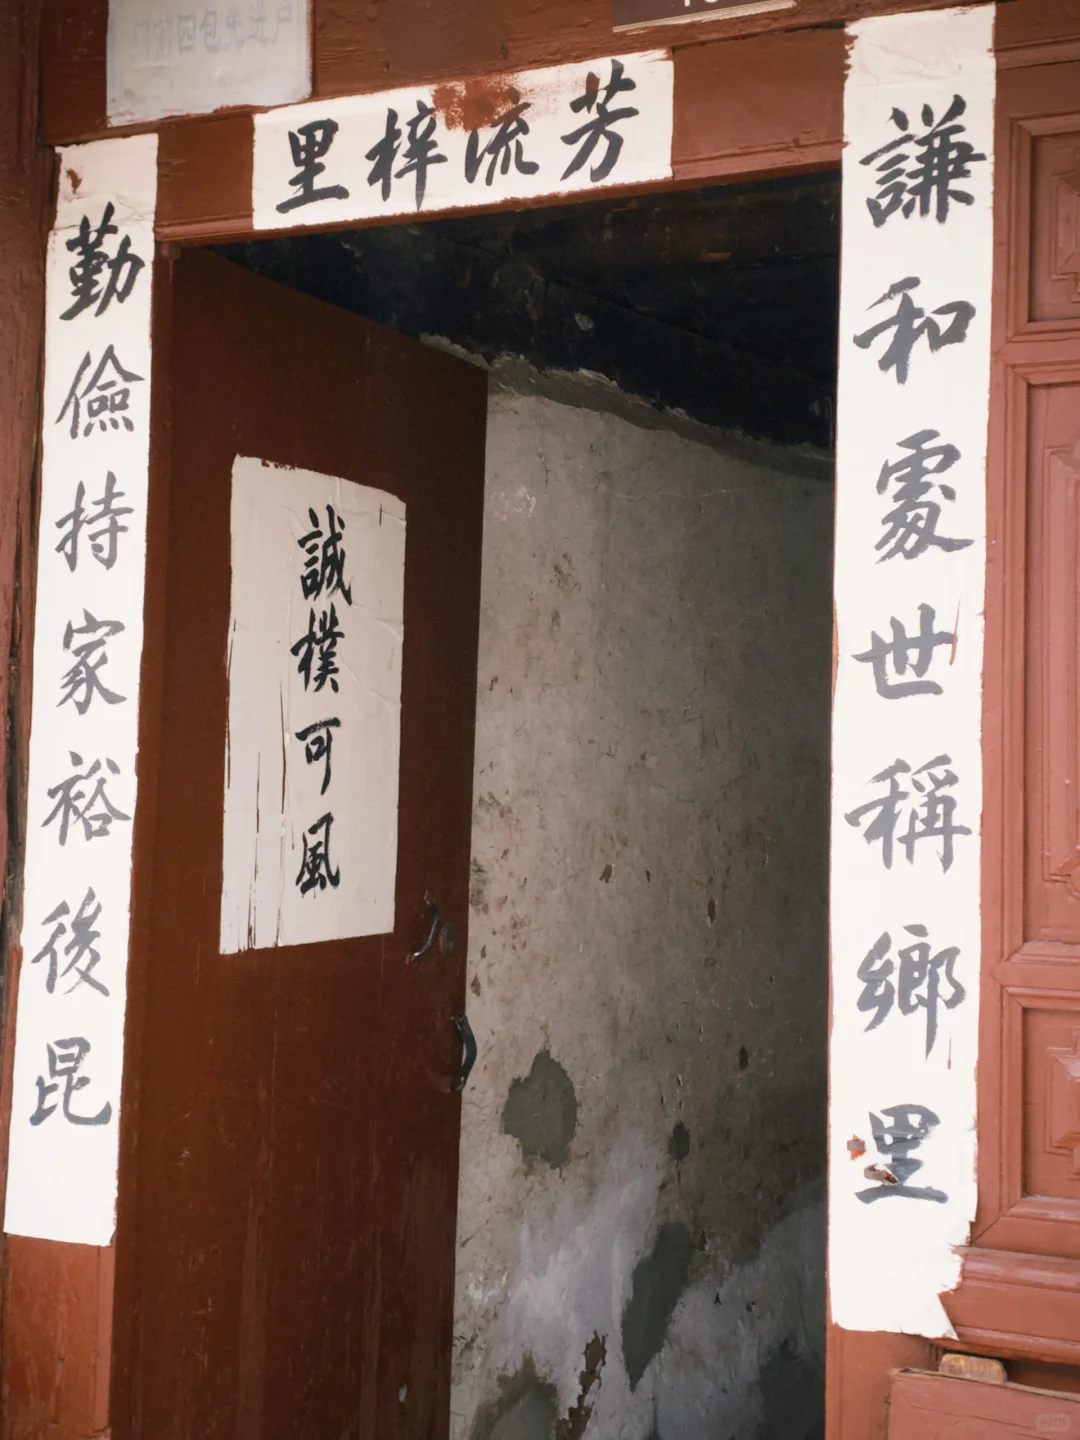 门前四包先进户
芳流梓里
謙和處世稱鄉里
勤儉持家裕後昆
誠樸可風